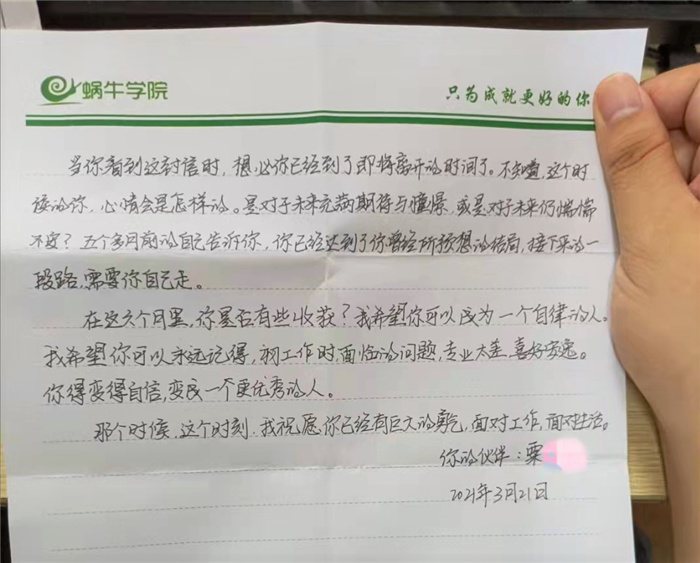 蜗牛学院
只为成就更好的你
当你看到这封信时，想必你已经到了即将离开的时间了。不知道，这个时
候的你，心情会是怎样的。是对于未来充满期待与憧憬，或是对于未来仍惴惴
不安？五个多月前的自己告诉你，你已经达到了你曾经所预想的结局，接下来的一
段路，需要你自己走。
在这六个月里，你是否有些收获？我希望你可以成为一个自律的人。
我希望你可以永远记得，初工作时，面临的问题，专业太差，喜好安逸。
你得变得自信，变成一个更优秀的人。
那个时候，这个时刻，我祝愿你已经有巨大的勇气，面对工作，面对生活。
你的伙伴：粟
2021年3月21日